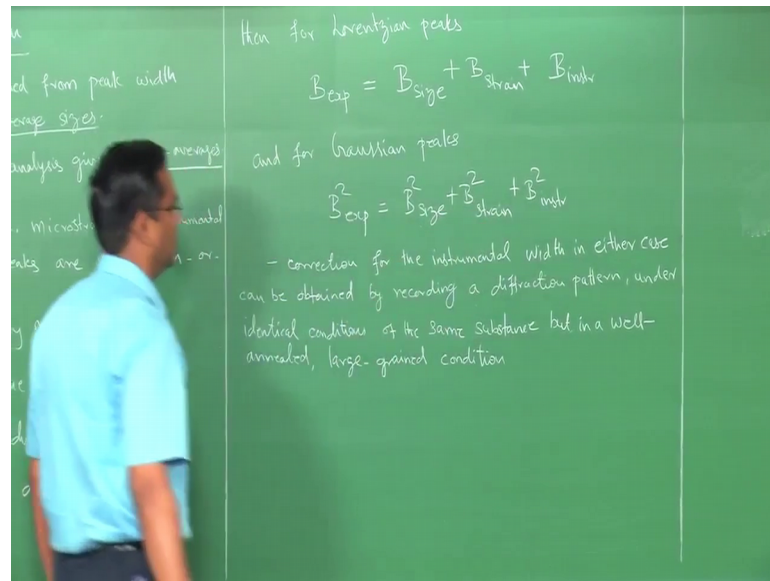 ed from peak width
erage sizes.
analysis giv averages
microstr umental
eaks are n-or-
then for Lorentzian peaks
B_exp = B_size + B_strain + B_instr
and for Gaussian peaks
B²_exp = B²_size + B²_strain + B²_instr
- correction for the instrumental width in either case
can be obtained by recording a diffraction pattern, under
identical conditions of the same substance but in a well-
annealed, large-grained condition